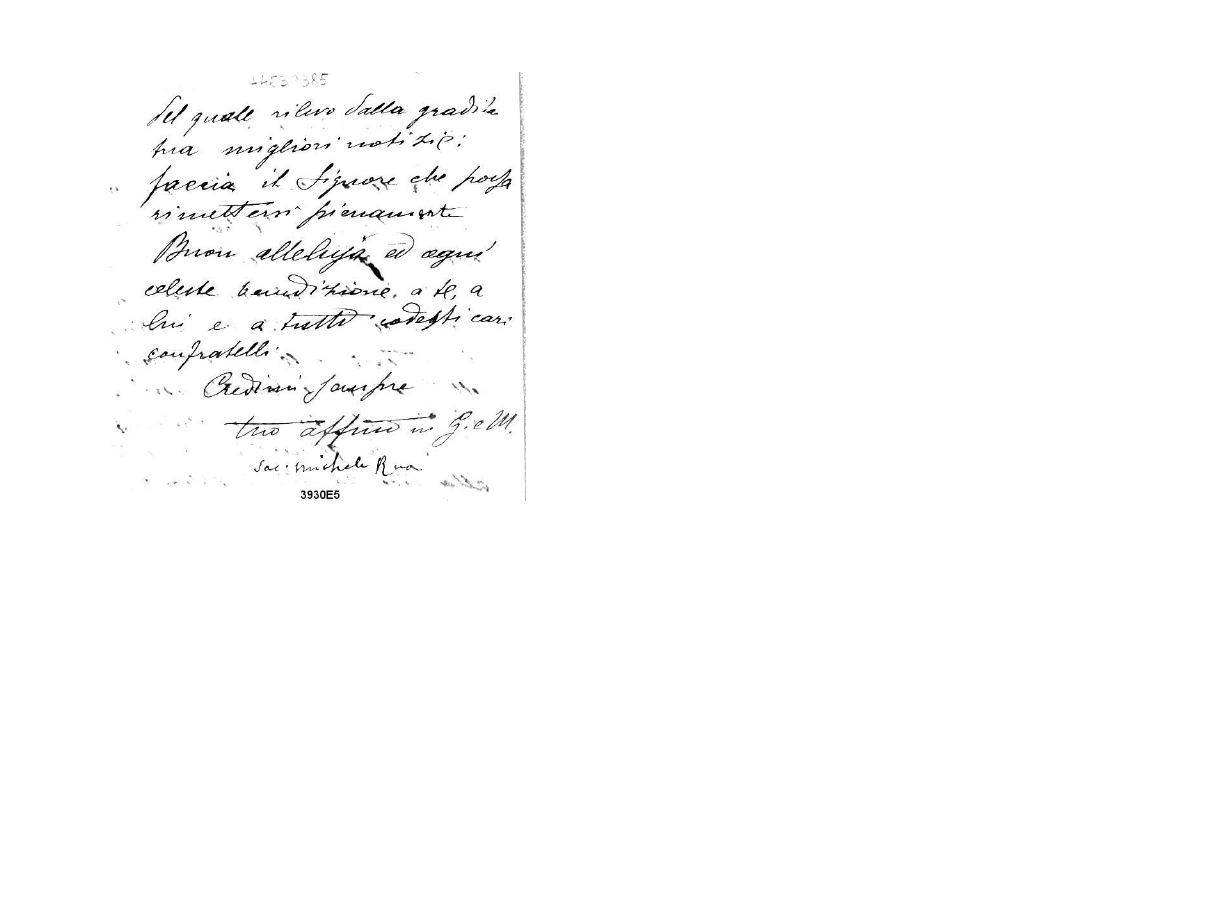 del quale rilevo dalla gradita
tua migliori notizie:
faccia il Signore che possa
rimettersi pienamente
Buon alleluja ed ogni
celeste benedizione, a te, a
lui e a tutti codesti cari
confratelli.
Credimi sempre
tuo affmo in G. e M.
Sac. Michele Rua
3930E5